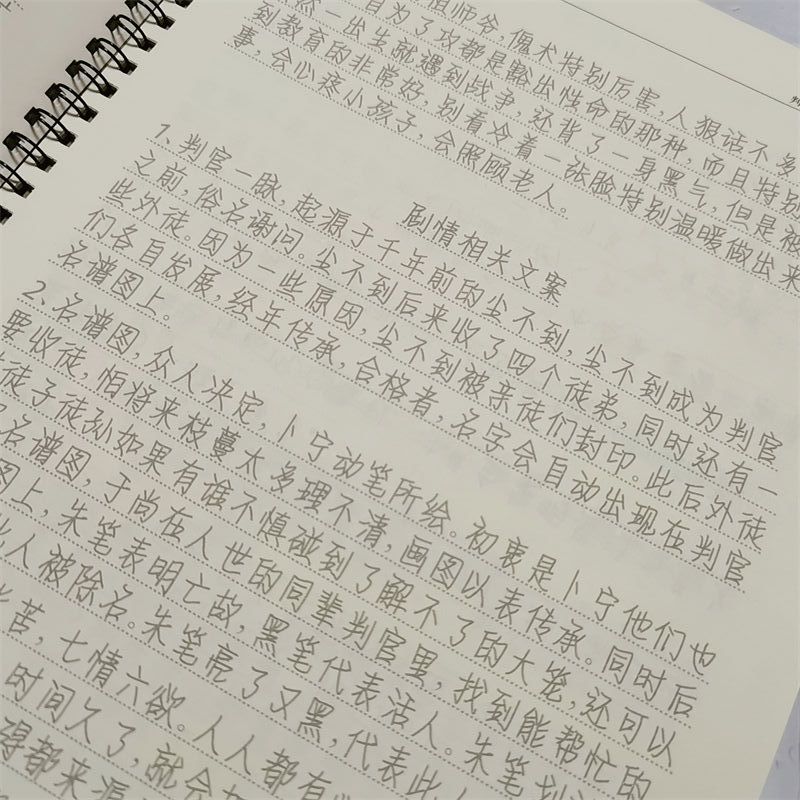 祖师爷,傀术特别厉害,人狠话不多
自为了攻都是豁出性命的那种,而且特别
然一出生就遇到战争,还背了一身黑气,但是被
到教育的非常好,别看冷着一张脸特别温暖做出来
事,会心疼小孩子,会照顾老人。
剧情相关文案
1、判官一脉,起源于千年前的尘不到,尘不到成为判官
之前,俗名谢问。尘不到后来收了四个徒弟,同时还有一
些外徒。因为一些原因,尘不到被亲徒们封印。此后外徒
们各自发展,经年传承,合格者,名字会自动出现在判官
名谱图上。
2、名谱图,众人决定,卜宁动笔所绘。初衷是卜宁他们也
要收徒,怕将来枝蔓太多理不清,画图以表传承。同时后
徒子徒孙如果有谁不慎碰到了解不了的大笼,还可以
名谱图,于尚在人世的同辈判官里,找到能帮忙的
图上,朱笔表明亡故,黑笔代表活人。朱笔划
此人被除名。朱笔亮了又黑,代表此人
苦,七情六欲。人人都有
时间久了,就会
得都来源
判